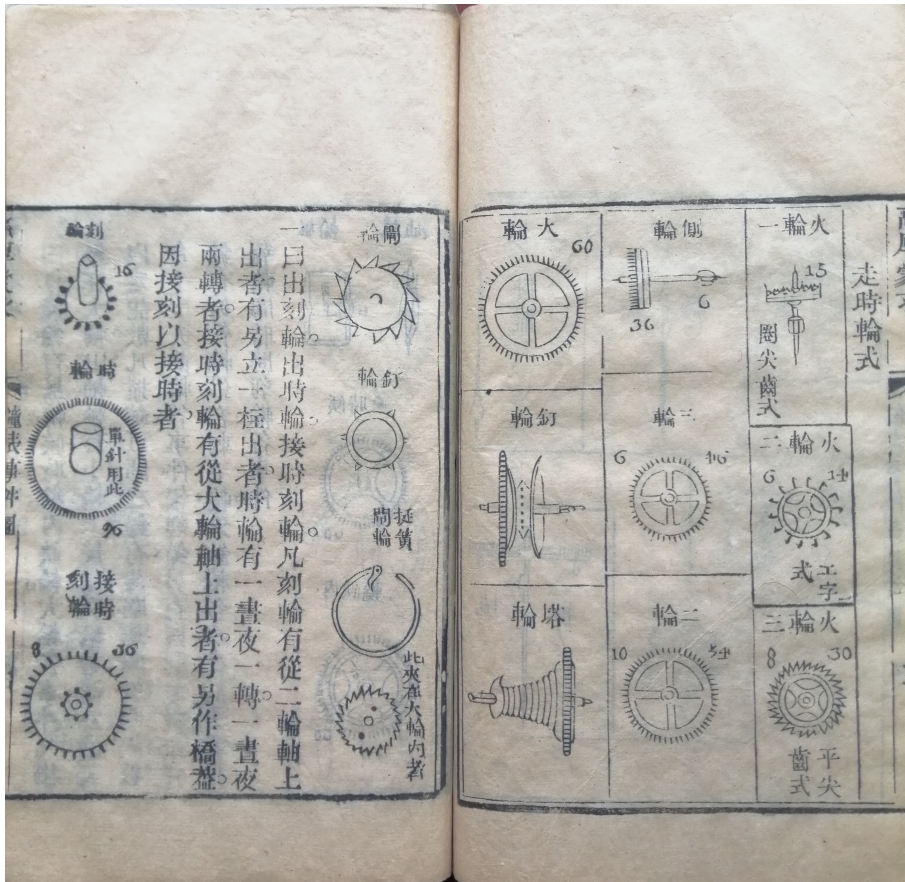 走時輪式
火輪一
15
圈尖齒式
火輪二
6
14
工字
式
火輪三
8
30
平尖
齒式
側輪
6
36
三輪
6
46
二輪
10
54
大輪
60
釘輪
塔輪
閘輪
釘輪
挺簧
閘輪
此夾在大輪内者
一曰出刻輪。出時輪。接時刻輪。凡刻輪有從二輪軸上
出者有另立一柱出者。時輪有一晝夜一轉。一晝夜
兩轉者。接時刻輪有從大輪軸上出者。有另作橋盤。
因接刻以接時者。
刻輪
16
時輪
單針用此
96
接時
刻輪
8
36